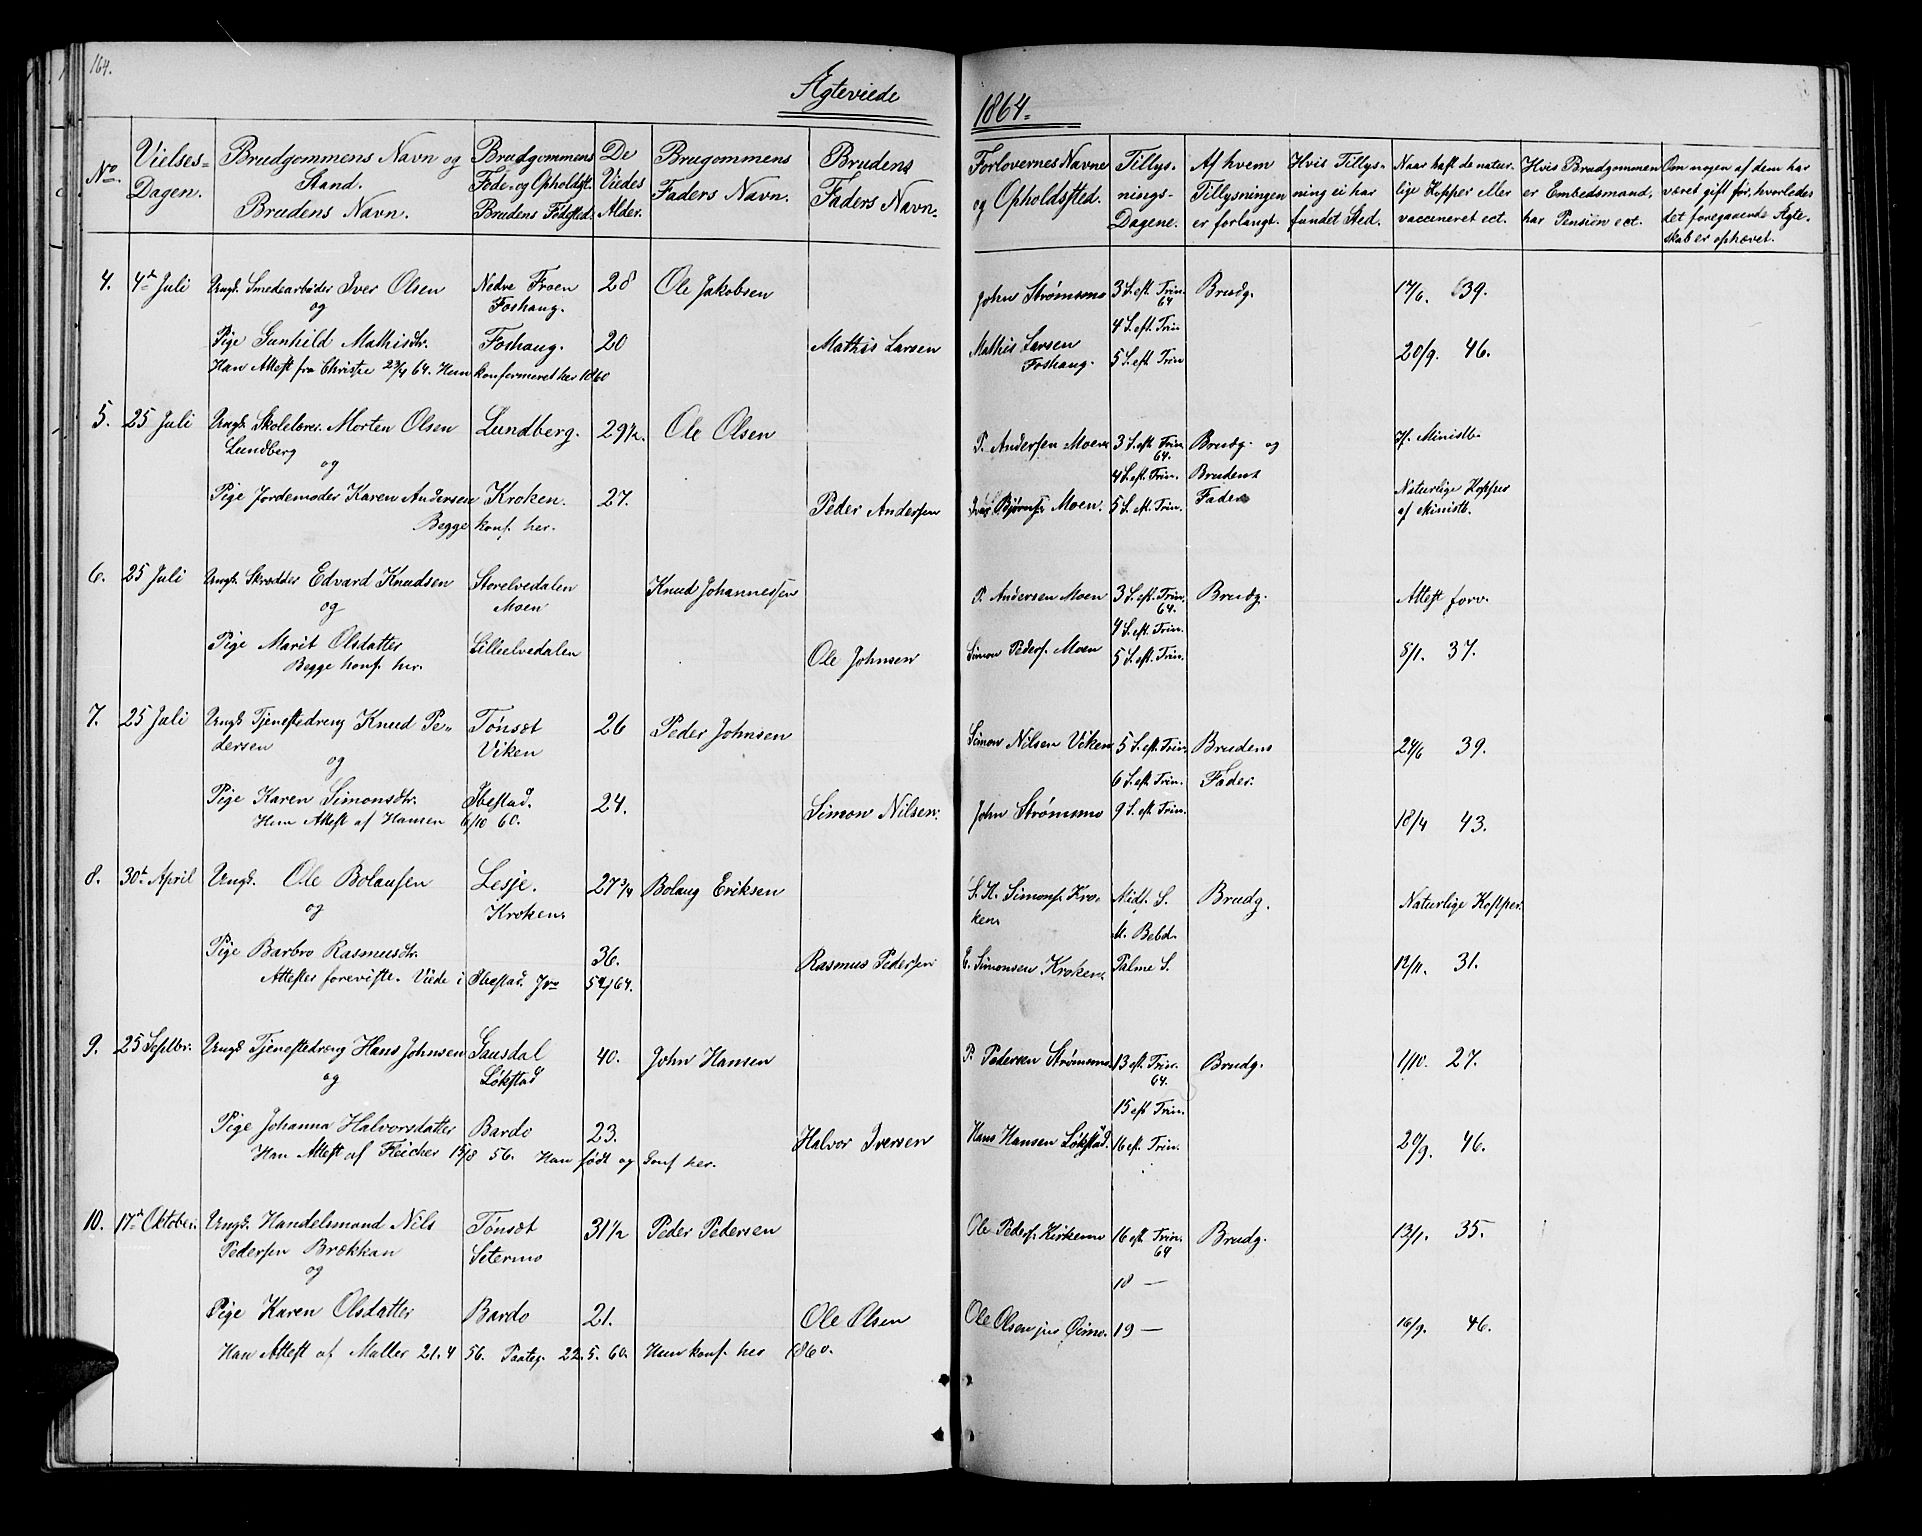 164.
Ægteviede
No.
Vielses-
Dagen.
Brudgommens Navn og
Stand.
Brudens Navn.
Brudgommens
Føde- og Opholdst.
Brudens Fødsted.
De
Viedes
Alder.
Brugommens
Faders Navn.
Brudens
Faders Navn.
4. 4de Juli Ungk. Smedearbeider Iver Olsen Nedre Froen 28 Ole Jakobsen
og Foshaug.
Pige Gunhild Mathisdtr. Foshaug. 20 Mathis Larsen
Han Attest fra Christie 23/4 64. Hun konfirmeret her 1860
5. 25 Juli Ungk. Skolelærer Morten Olsen Lundberg. 29 1/2. Ole Olsen
Lundberg
og
Pige Jordemoder Karen Andersen Kroken. 27. Peder Andersen
Begge konf. her.
6. 25 Juli Ungk. Skrædder Edvard Knudsen Storelvedalen Knud Johannessen
og Moen
Pige Marit Olsdatter Lilleelvedalen Ole Johnsen
Begge konf. her.
7. 25 Juli Ungk Tjenestedreng Knud Pe- Tønset 26 Peder Johnsen
dersen Viken
og
Pige Karen Simonsdtr. Ibestad. 24. Simon Nilsen.
Hun Attest af Hansen 6/10 60.
8. 30te April Ungk. Ole Bolausen Lesje. 27 3/4 Bolaug Eriksen
og Kroken.
Pige Barbro Rasmusdtr. 36. Rasmus Pedersen
Attester foreviste. Viede i Ibestad.
9. 25 Septbr. Ungk Tjenestedreng Hans Johnsen Gausdal 40. John Hansen
og Løkstad
Pige Johanna Halvorsdatter Bardo 23. Halvor Iversen
Han Attest af Fleicher 15/8 56. Hun født og Conf her.
10. 17de Oktober. Ungk. Handelsmand Nils Tønset 31 1/2 Peder Pedersen
Pedersen Brækkan Setermo
og
Pige Karen Olsdatter Bardo 21. Ole Olsen
Han Attest af Møller 21. 4 56. Paateg. 22. 5. 60. Hun konf. her 1860.
1864.
Forlovernes Navne
og Opholdsted.
Tillys-
nings-
Dagene.
Af hvem
Tillysningen
er forlangt.
Hvis Tillys-
ning ei har
fundet Sted.
Naar haft de natur-
lige Kopper eller
vaccineret ect.
Hvis Brudgommen
er Embedsmand,
har Pension ect.
Om nogen af dem har
været gift før, hvorledes
det foregaaende Ægte-
skab er ophævet.
John Strømsmo 3 S. eft. Trin. 64 Brudg. 17/6. 39.
4 S. eft. Trin
Mathis Larsen Foshaug. 5 S. eft. Trin 20/9. 46.
P. Andersen Moen 3 S. eft. Trin. 64. Brudg. og
4 S. eft. Trin. Brudens
Iver Bjørns. Moen. 5 S. eft. Trin. Fader Naturlige Kopper
af Ministb.
P. Andersen Moen 3 S. eft. Trin. 64. Brudg. Attest forev.
4 S. eft. Trin.
Simon Peders. Moen 5 S. eft. Trin. 8/1. 37.
Simon Nilsen Viken 5 S. eft. Trin. Brudens 24/6 39.
6 S. eft. Trin. Fader.
John Strømsmo 9 S. eft. Trin. 18/4 43.
S. H. Simons. Kro- Midf. S. Brudg. Naturlige Kopper.
ken M. Bebd.
E. Simonsen Kroken. Palme S. 12/11. 31.
P. Pedersen Strømsmo. 13 eft. Trin. 64. Brudg. 1/10. 27.
15 eft Trin.
Hans Hansen Løkstad. 16 eft. Trin. 20/9. 46.
Ole Peders. Kirkemo 16 eft. Trin. 64 Brudg. 13/1. 35.
18 —
Ole Olsen jus Øimo. 19 — 16/9. 46.